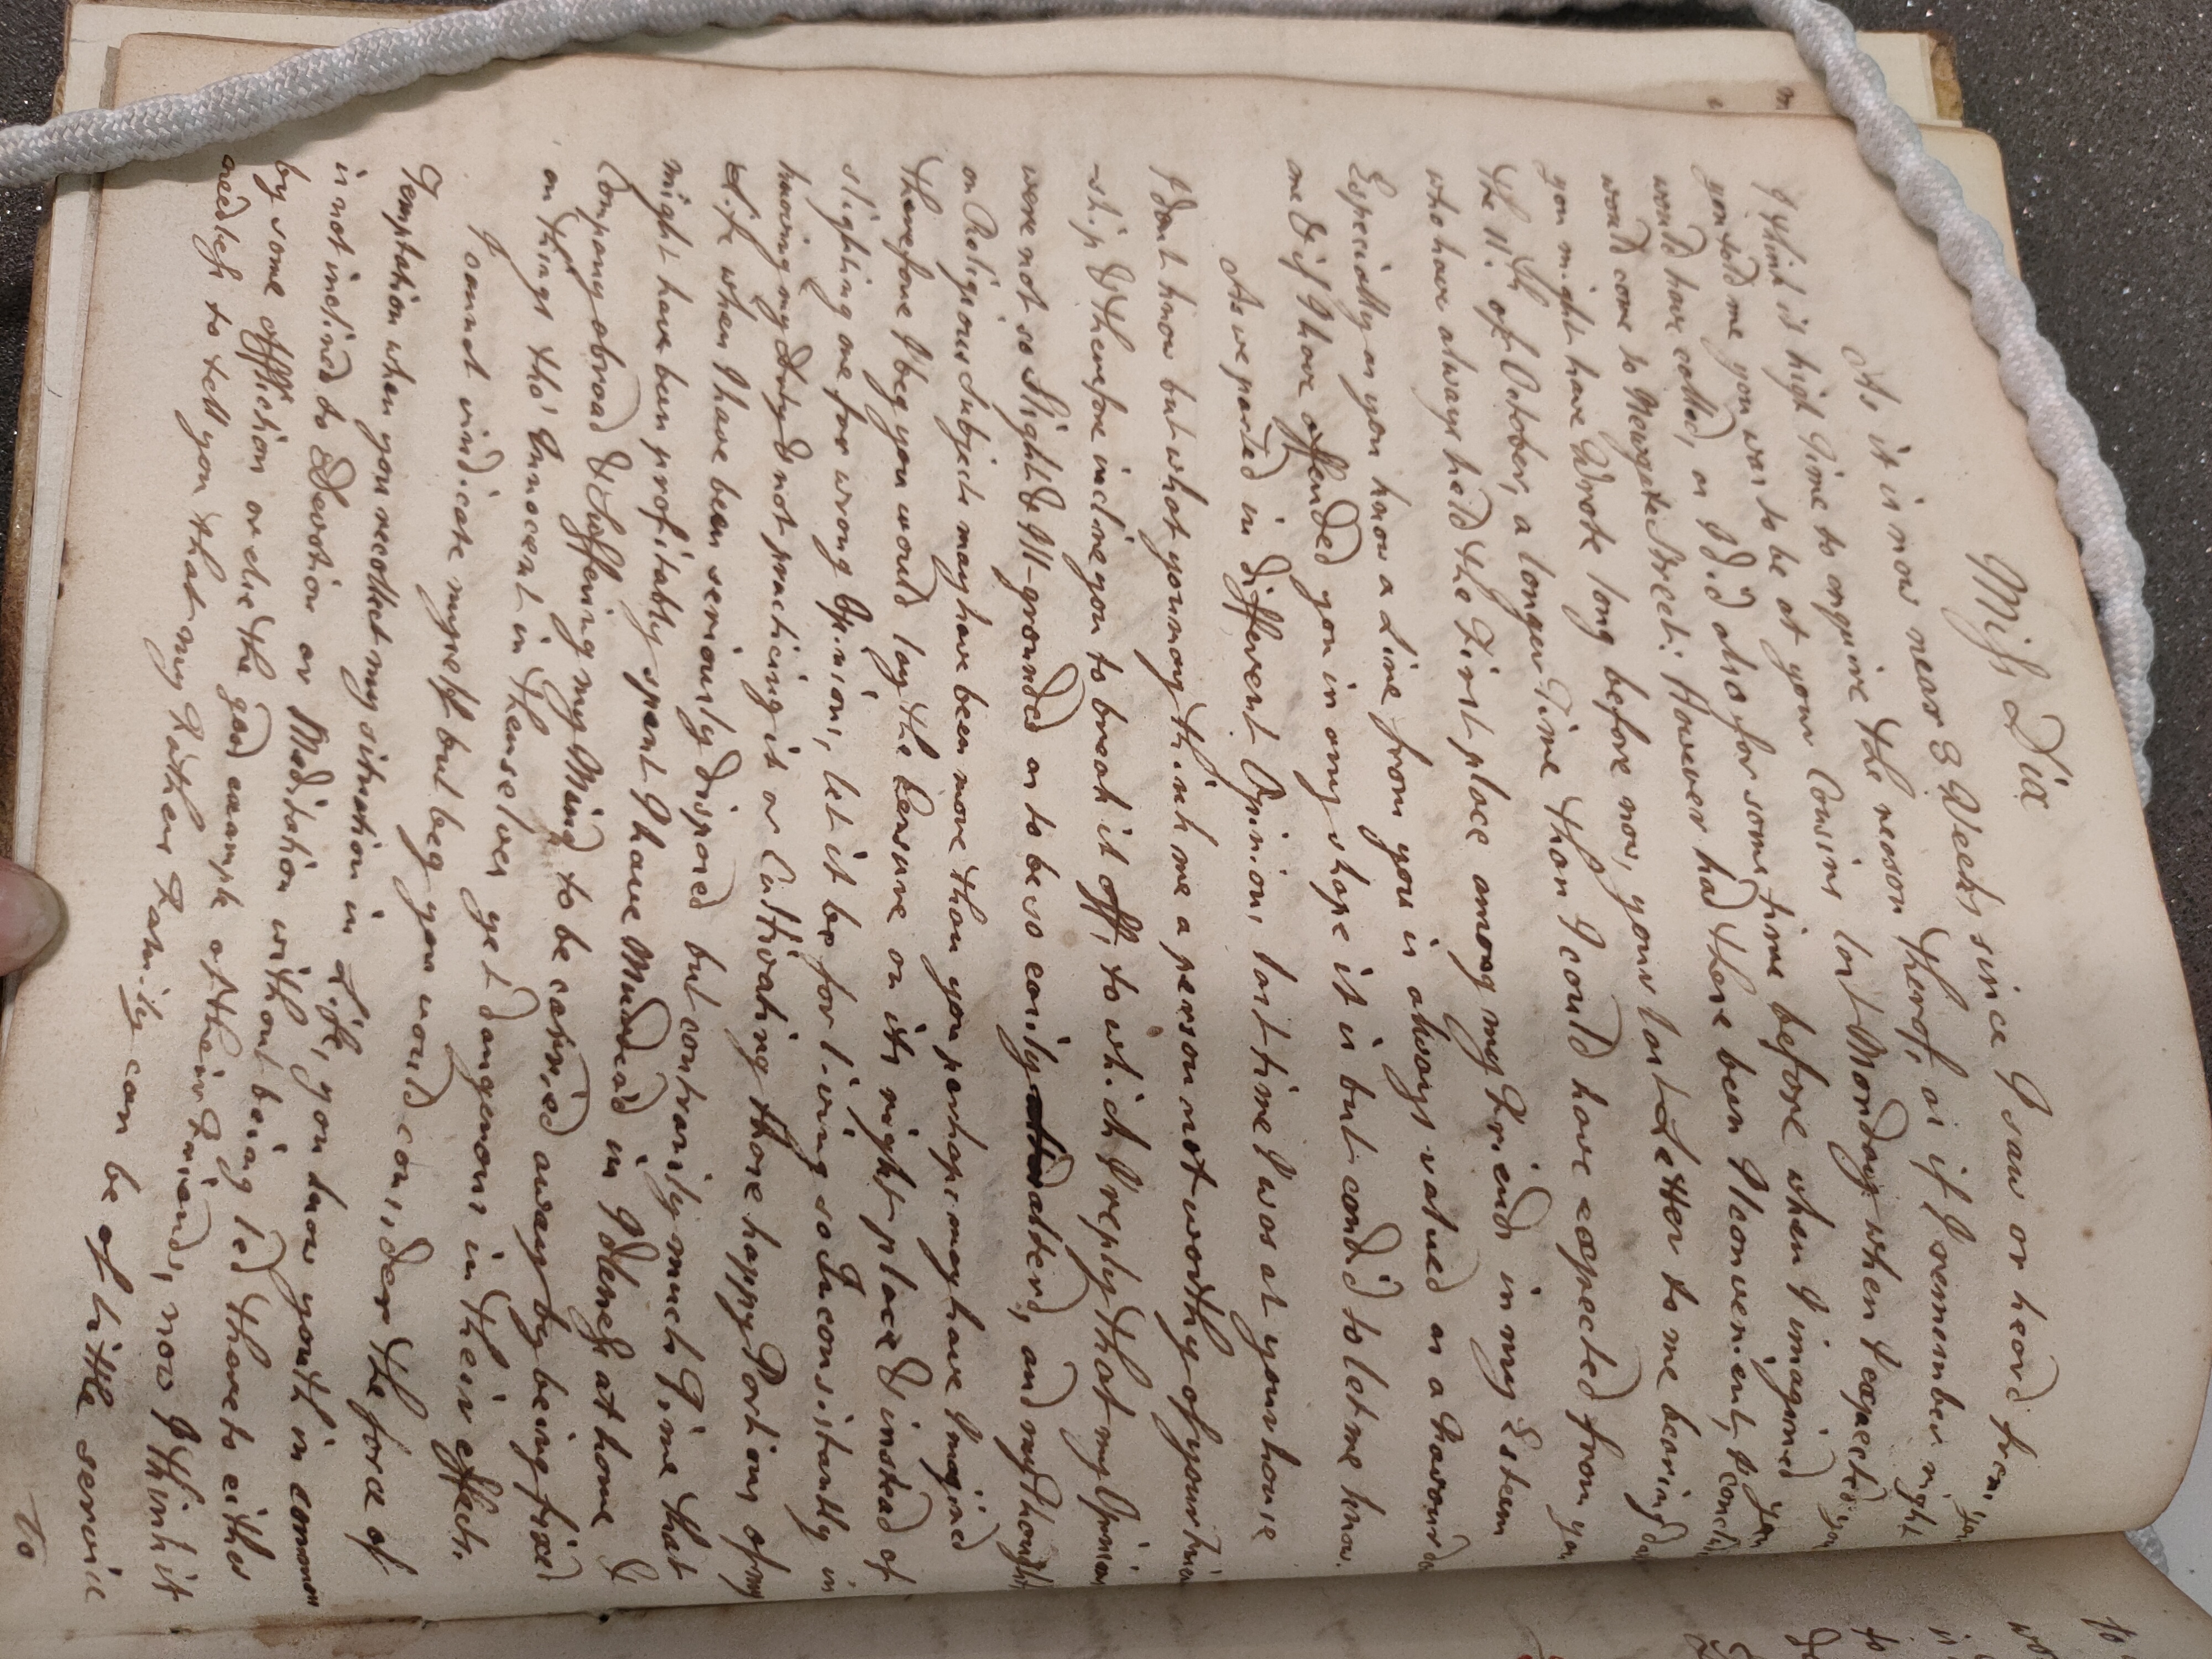 Miss Dix
As it is now near 3 Weeks since I saw or heard from you
I think it high Time to enquire the reason therof, as if I remember right
you told me you was to be at your Cousins last Monday when I expected you
would have called, as I did also for some time before when I imagined you
would come to Newgate Street: However had there been Iconvenient,
you might have Wrote long before now, your last Letter to me bearing da
the 11th of October, a longer Time than I could have expected from you
who have always held the First place among my Friends in my Esteem
Especially as you know a Line from you is always valued as a Favour &
me & if I have offended you in any shape it is but cand'd to let me know.
As we parted in different Opinions last time I was at your house
I dont know but what you may think me a person not worthy of your Frien
-ship & therefore incline you to break it off, to which I reply that my Opinions
were not so Slight & Ill-grounded as to be so easily alterd, and my thoughts
on Religious Subjects may have been more than you perhaps may have Imagined
therefore I beg you would lay the Censure on its right place & instead of
slighting me for wrong Opinions, let it be for living so Inconsistantly in
knowing my Duty & not practicing it or Cultivating those happy Portions of my
Life when I have been seriously disposed but contrarily much Time that
might have been profitably spent I have Murder'd in Idleness at home &
Company abroad & suffering my Mind to be carried away by being fixed
on things tho' Innocent in themselves yet dangerous in their effects.
I cannot vindicate myself but beg you would consider the force of
Temptation when you recollect my situation in Life, you know youth in common
is not inclined to Devotion or Meditation without being led thereto either
by some affliction or else the good example of their Friends, now I think it
needless to tell you that my Father Family can be of little service
to